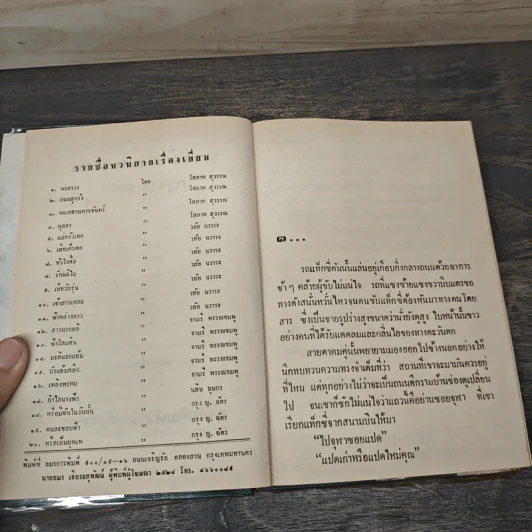 รายชื่อนวนิยายเรื่องเยี่ยม
๑. โดย โสภาค สุวรรณ
๒. ถนนสุดรัก " โสภาค สุวรรณ
๓. ทะเลสาบพระจันทร์ " โสภาค สุวรรณ
๔. " วลัย นวาระ
๕. " วลัย นวาระ
๖. " วลัย นวาระ
๗. " วลัย นวาระ
๘. " วลัย นวาระ
๙. " วลัย นวาระ
๑๐. เจ้าสาวเชลย " วลัย นวาระ
๑๑. " จามรี พรรณชมพู
๑๒. สาวแรกผลิ " จามรี พรรณชมพู
๑๓. " จามรี พรรณชมพู
๑๔. " จามรี พรรณชมพู
๑๕. " จามรี พรรณชมพู
๑๖. เพลิงพรหม " นลิน บุษกร
๑๗. กำไลนางฟ้า " กรุง ญ. ฉัตร
๑๘. หรือฉันในวันนั้น " กรุง ญ. ฉัตร
๑๙. คนละขอบฟ้า " กรุง ญ. ฉัตร
๒๐. หรือเป็นบุพเพ " กรุง ญ. ฉัตร
พิมพ์ที่ อมรการพิมพ์ ๕๐๐/๑๕-๑๖ ถนนเจริญรัถ คลองสาน กรุงเทพมหานคร
นายอมร ผู้พิมพ์ผู้โฆษณา ๒๕๒๔ โทร.
๑...
รถแท็กซี่คันนั้นแล่นอยู่เกือบกึ่งกลางถนนด้วยอาการ
ช้าๆ คล้ายผู้ขับไม่แน่ใจ รถที่แซงซ้ายแซงขวาบีบแตรขอ
ทางดังสนั่นหวั่นไหวจนคนขับแท็กซี่ต้องหันมาทางคนโดย
สาร ซึ่งเป็นชายรูปร่างสูงขนาดว่านั่งยังดูสูง ใบหน้านั้นขาว
อย่างคนที่ได้รับแดดลมและกลิ่นไอของทางตะวันตก
สายตาคมคู่นั้นพยายามมองออกไปข้างนอกอย่างให้
นึกทบทวนความทรงจำเต็มที่ว่า สถานที่เขาจะมามันควรอยู่
ที่ไหน แต่ทุกอย่างไม่ว่าจะเป็นถนนตึกรามบ้านช่องดูเปลี่ยน
ไป จนเขาก็ชักไม่แน่ใจว่าแถวนี้คือย่านซอยจุฬา ที่เขา
เรียกแท็กซี่จากสนามบินให้มา
“ไปจุฬาซอยแปด”
“แปดเก่าหรือแปดใหม่คุณ”